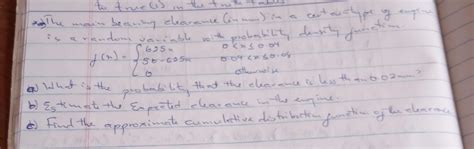 to true(s) in the truth tables
The main bearing clearance (in mm) in a certain type of engine
is a random variable with probability density function.
f(x) = { 625x 0 < x ≤ 0.04
50 - 625x 0.04 < x ≤ 0.08
0 otherwise
a) What is the probability that the clearance is less than 0.02mm?
b) Estimate the Expected clearance in the engine.
c) Find the approximate cumulative distribution function of the clearance